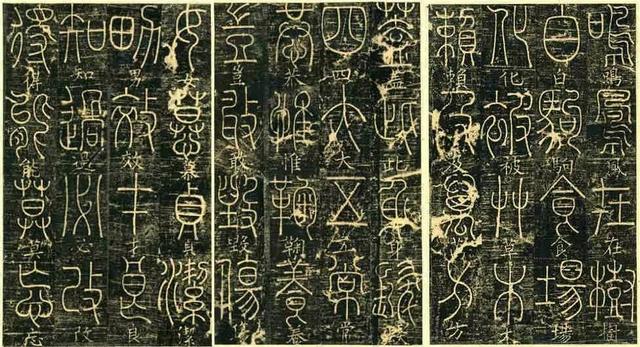 鳴鳳在樹
白駒食場
化被草木
賴及萬方
蓋此身髮
四大五常
恭惟鞠養
豈敢毀傷
女慕貞潔
男效才良
知過必改
得能莫忘